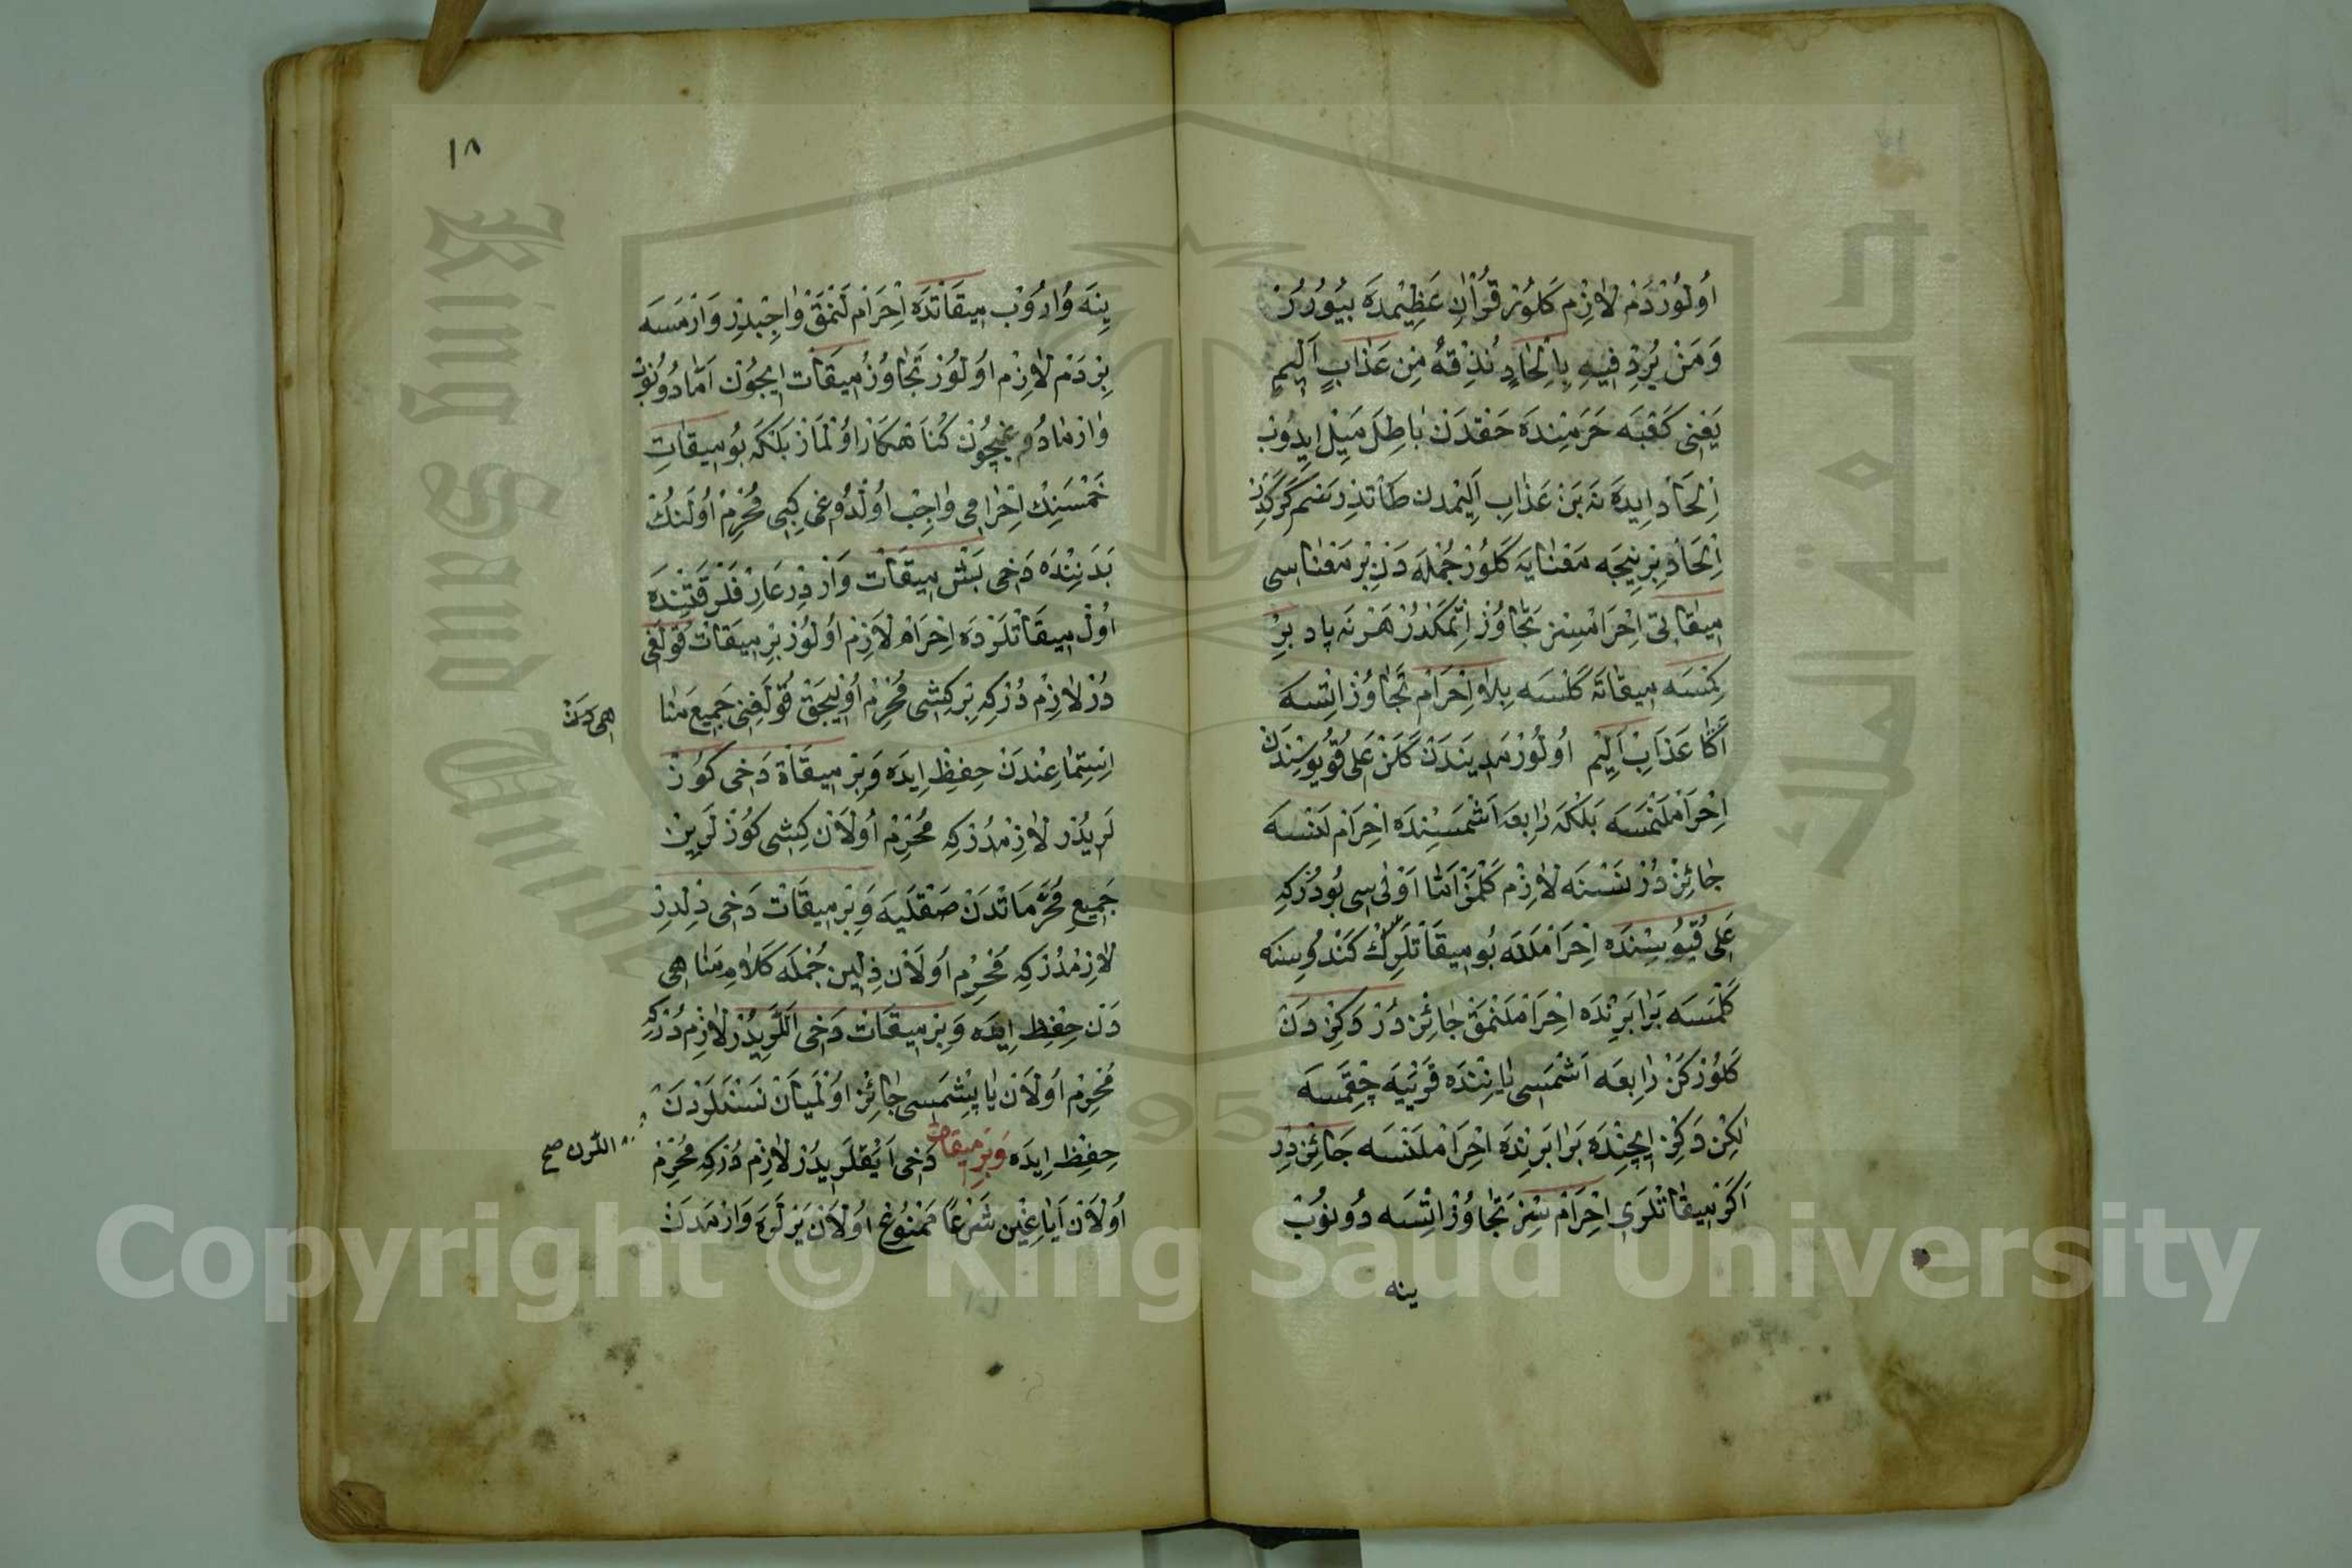 اُولُورْ دَمْ لَازِمْ كَلُورْ قُرْاٰنِ عَظِيْمدَه بُيُورُرْ
وَمَنْ يُرِدْ فِيهِ بِاِلْحَادٍ نُذِقْهُ مِنْ عَذَابٍ اَلِيمٍ
يَعْنِى كَعْبَه حَرَمِنْدَه حَقْدَنْ بَاطِلَ مَيْلْ ايدُوبْ
اِلْحَادْ ايدَه نَه بَنْ عَذَابِ اَلِيْمدن طَاتْدِرْسَم كَرَكْدِرْ
اِلْحَادْ بِرْنِيجَه مَعْنَايَه كَلُورْ جُمْلَه دَنْ بِرْ مَعْنَاسِى
مِيقَاتِى اِحْرَامْسِزْ تَجَاوُزْ اِتْمَكْدُرْ هَرْ نَه ياد بِرْ
كِمْسَه مِيقَاتَه كَلْسَه بِلَا اِحْرَامْ تَجَاوُزْ اِتْسَه
اَكَا عَذَابِ اَلِيْم اُولُورْ مَدِينَدَنْ كَلَنْ عَلِى قُوُيوسِنْدَنْ
اِحْرَامْلَنْمَسَه بَلْكَه رَابِعَه اَشْمَسِنْدَه اِحْرَامْلَنْسَه
جَائِزْدُرْ نَسْنَه لَازِمْ كَلْمَزْ اَمَّا اَوْلٰى سِى بُودُرْكِه
عَلِى قُيُوسِنْدَه اِحْرَامْلَنَه بُو مِيقَاتْلَرِكْ كَنْدُوسِنَه
كَلْمَسَه بَرَابَرِنْدَه اِحْرَامْلَنْمَقْ جَائِزْدُرْ دَكِزْدَنْ
كَلُورْكَنْ رَابِعَه اَشْمَسِى يَانِنْدَه قَرَيَيَه چِقَمَسَه
لٰكِنْ دَكِزْ ايچِنْدَه بَرَابَرِنْدَه اِحْرَامْلَنْسَه جَائِزْدِرْ
اَكَرْ مِيقَاتْلَرِى اِحْرَامْ سِزْ تَجَاوُزْ اِتْسَه دُونُوبْ
ينه
١٨
يِنَه وَارُوبْ مِيقَاتْدَه اِحْرَامْلَنْمَقْ وَاجِبْدِرْ وَارْمَسَه
بِرْ دَمْ لَازِمْ اُولُورْ تَجَاوُزُ مِيقَاتْ ايچُونْ اَمَّا دُونُوبْ
وَارْمَادُوغِيچُونْ كُنَاهكَارْ اُولْمَازْ بَلْكَه بُو مِيقَاتِ
خَمْسَنِكْ اِحْرَامِى وَاجِبْ اُولْدُوغِى كِبِى مُحْرِمْ اُولَنُكْ
بَدَنِنْدَه دَخِى بَشْ مِيقَاتْ وَارْدِرْ عَارِفْلَرْ قَتِنْدَه
اُولْ مِيقَاتْلَرْدَه اِحْرَامْ لَازِمْ اُولُورْ بِرْ مِيقَاتْ قُولَغِى
دُرْ لَازِمْ دُرْكِه بِرْ كِشِى مُحْرِمْ اُوْلِيجَقْ قُولَغِنِى جَمِيعِ مَنَا
هى دَنْ
اِسْتِمَاعِنْدَنْ حِفِظْ ايدَه وَبِرْ مِيقَاتْ دَخِى كُوزْ
لَرِيدُرْ لَازِمْدُرْكِه مُحْرِمْ اُولَانْ كِشِى كُوزْلَرِينْ
جَمِيعِ مُحَرَّمَاتْدَنْ صَقْلَيَه وَبِرْ مِيقَاتْ دَخِى دِلْدِرْ
لَازِمْدُرْكِه مُحْرِمْ اُولَانْ دِلِينْ جُمْلَه كَلَامِ مَنَاهِى
دَنْ حِفِظْ ايدَه وَبِرْ مِيقَاتْ دَخِى اَللَّرِيدُرْ لَازِمْ دُرْكِه
مُحْرِمْ اُولَانْ يَاپِشْمَسِى جَائِزْ اُولْمَيَانْ نَسْنَلَرْدَنْ
اللرن صح
حِفِظْ ايدَه وَبِرْ مِيقَات دَخِى اَيَقْلَرِيدُرْ لَازِمْ دُرْكِه مُحْرِمْ
اُولَانْ اَيَاغِيْنْ شَرْعًا مَمْنُوعْ اُولَانْ يَرْلَرَه وَارْمَدَنْ
King Saud University
Copyright © King Saud University